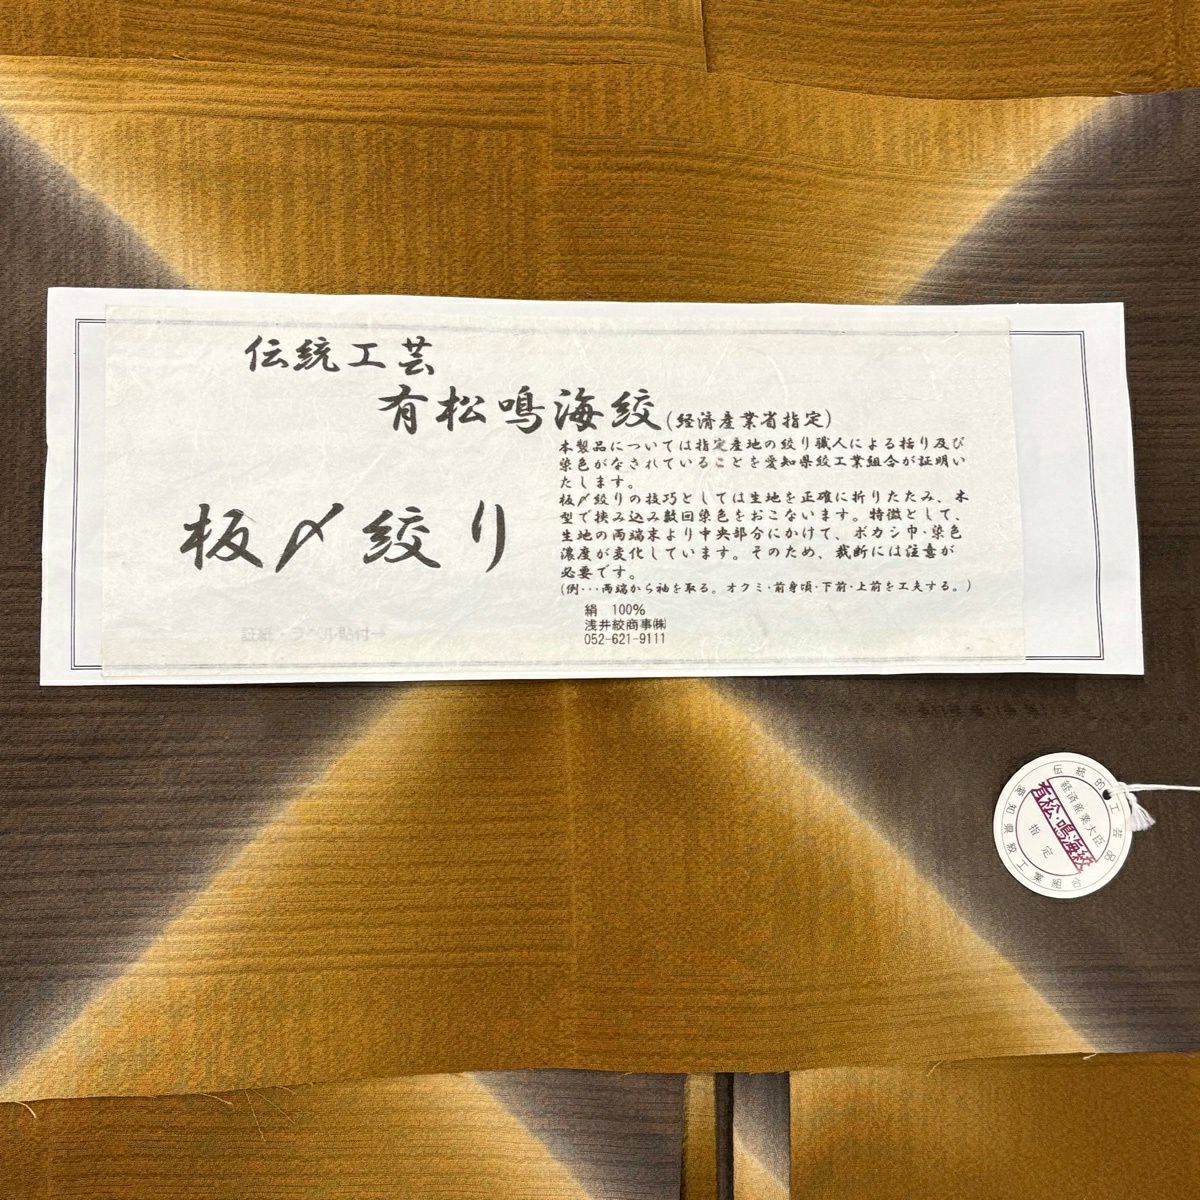 伝統工芸
有松鳴海絞(経済産業省指定)
本製品については指定産地の絞り職人による括り及び
染色がなされていることを愛知県絞工業組合が証明い
たします。
板〆絞りの技巧としては生地を正確に折りたたみ、木
型で挟み込み数回染色をおこないます。特徴として、
生地の両端末より中央部分にかけて、ボカシ巾・染色
濃度が変化しています。そのため、裁断には注意が
必要です。
(例･･･両端から袖を取る。オクミ・前身頃・下前・上前を工夫する。)
板〆絞り
絹 100%
浅井絞商事㈱
052-621-9111
証紙・ラベル貼付→
伝統的工芸品
経済産業大臣
有松・鳴海絞
指定
愛知県絞工業組合